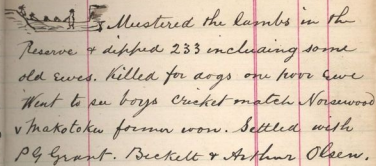 Mustered the lambs in the
Reserve & dipped 233 including some
old ewes. Killed for dogs one poor Ewe
Went to see boys cricket match Norsewood
v Makotoku former won. Settled with
P G Grant. Beckett & Arthur Olsen.